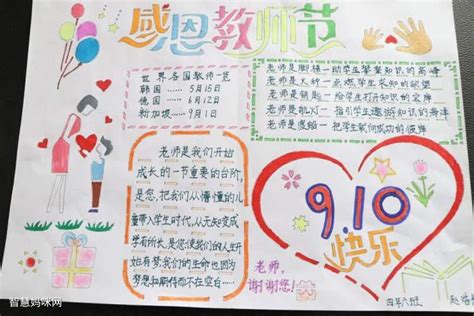 感恩教师节
世界各国教师节一览
韩国 …… 5月15日
德国 …… 6月12日
新加坡 …… 9月1日
老师是脚梯—助学生攀登知识的高峰
老师是火种—点燃学生求知的欲望
老师是钥匙—给学生打开知识的宝库
老师是航灯—指引学生遨游知识的海洋
老师是渡船—把学生载向成功的彼岸
老师是我们开始
成长的一节重要的台阶,
是您,把我们从懵懂的儿
童带入学生时代,从无知变成
学有所长,是您使我们的人生开
始有梦,我们的生命也因为
梦想和期待而不在空白……
9.10
快乐
老师,
谢谢您!
四年六班
智慧妈咪网